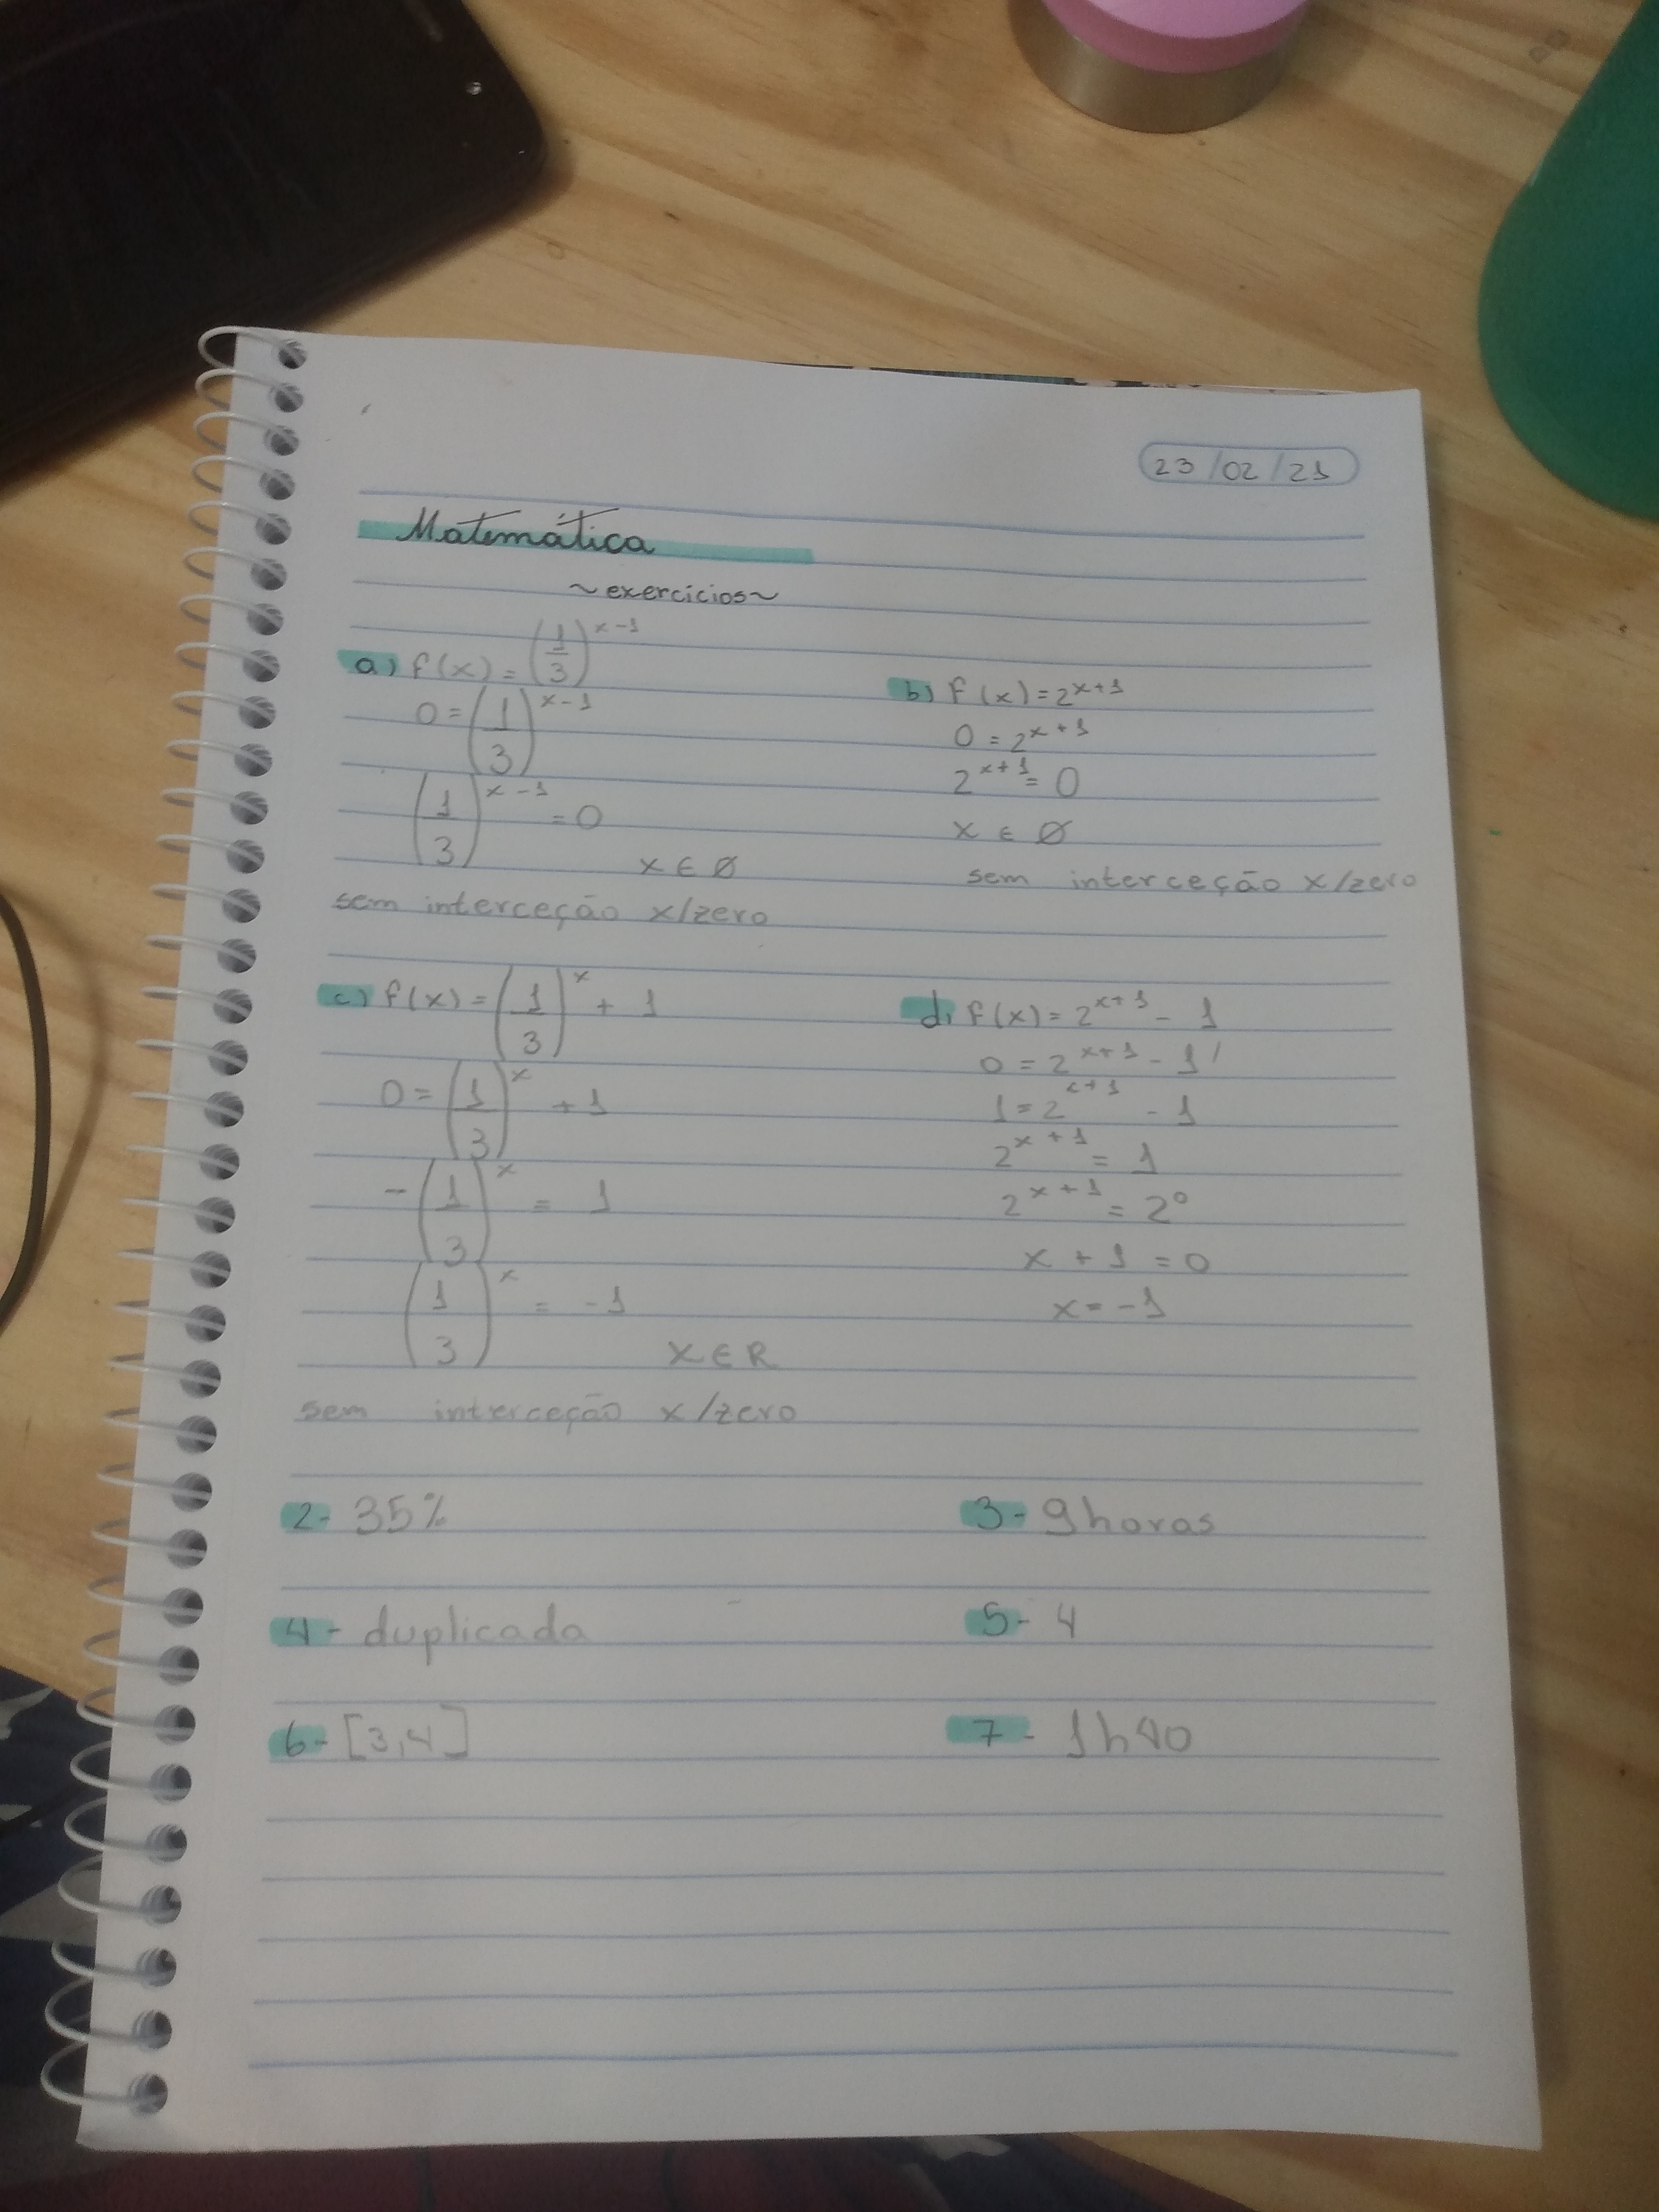 23/02/21
Matemática
~exercicios~
a) f(x) = (1/3)^x-1
0 = (1/3)^x-1
(1/3)^x-1 = 0
x ∈ Ø
sem interceção x/zero
b) f(x) = 2^x+1
0 = 2^x+1
2^x+1 = 0
x ∈ Ø
sem interceção x/zero
c) f(x) = (1/3)^x + 1
0 = (1/3)^x + 1
-(1/3)^x = 1
(1/3)^x = -1
x ∈ R
sem interceção x/zero
d) f(x) = 2^x+1 - 1
0 = 2^x+1 - 1
1 = 2^x+1 - 1
2^x+1 = 1
2^x+1 = 2^0
x + 1 = 0
x = -1
2- 35%
3- 9horas
4- duplicada
5- 4
6- [3,4]
7- 1h40